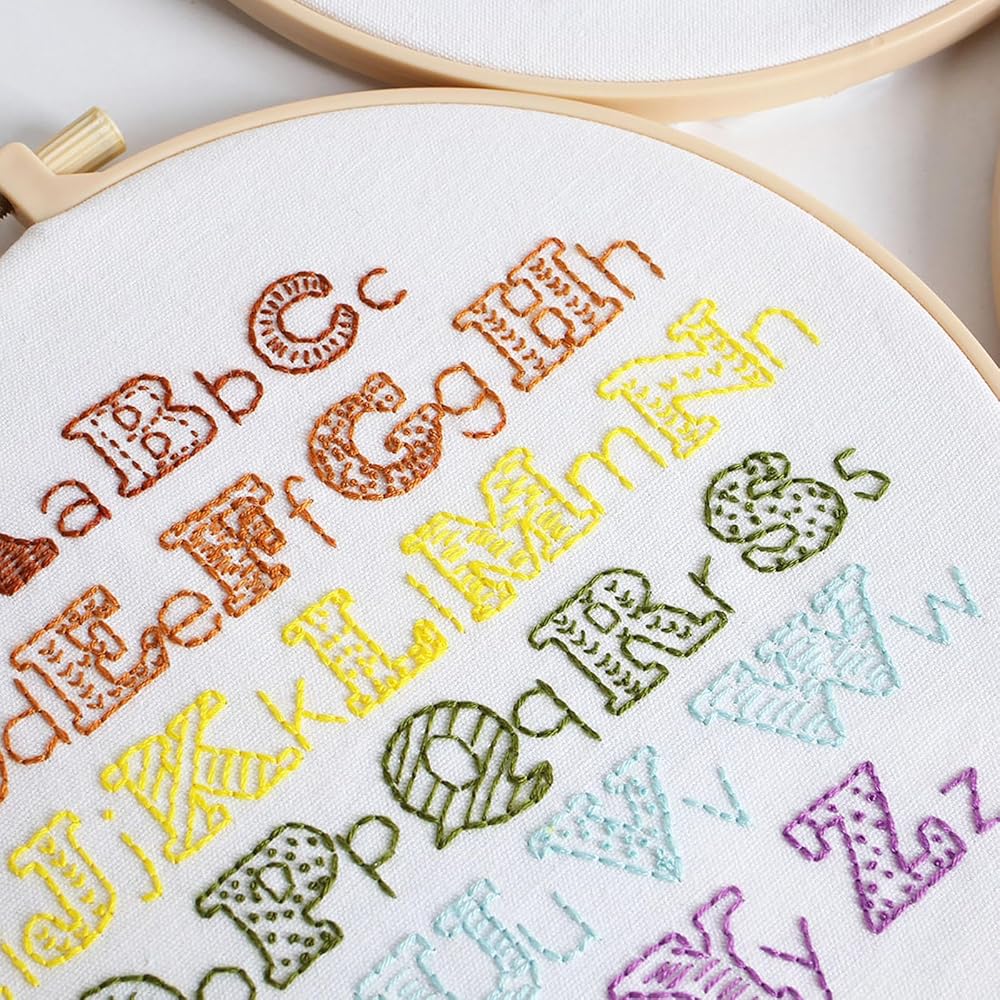 Aa Bb Cc
d Ee Ff Gg Hh
Jj Kk Ll Mm Nn
Pp Qq Rr Ss
Uu Vv Ww
Yy Zz